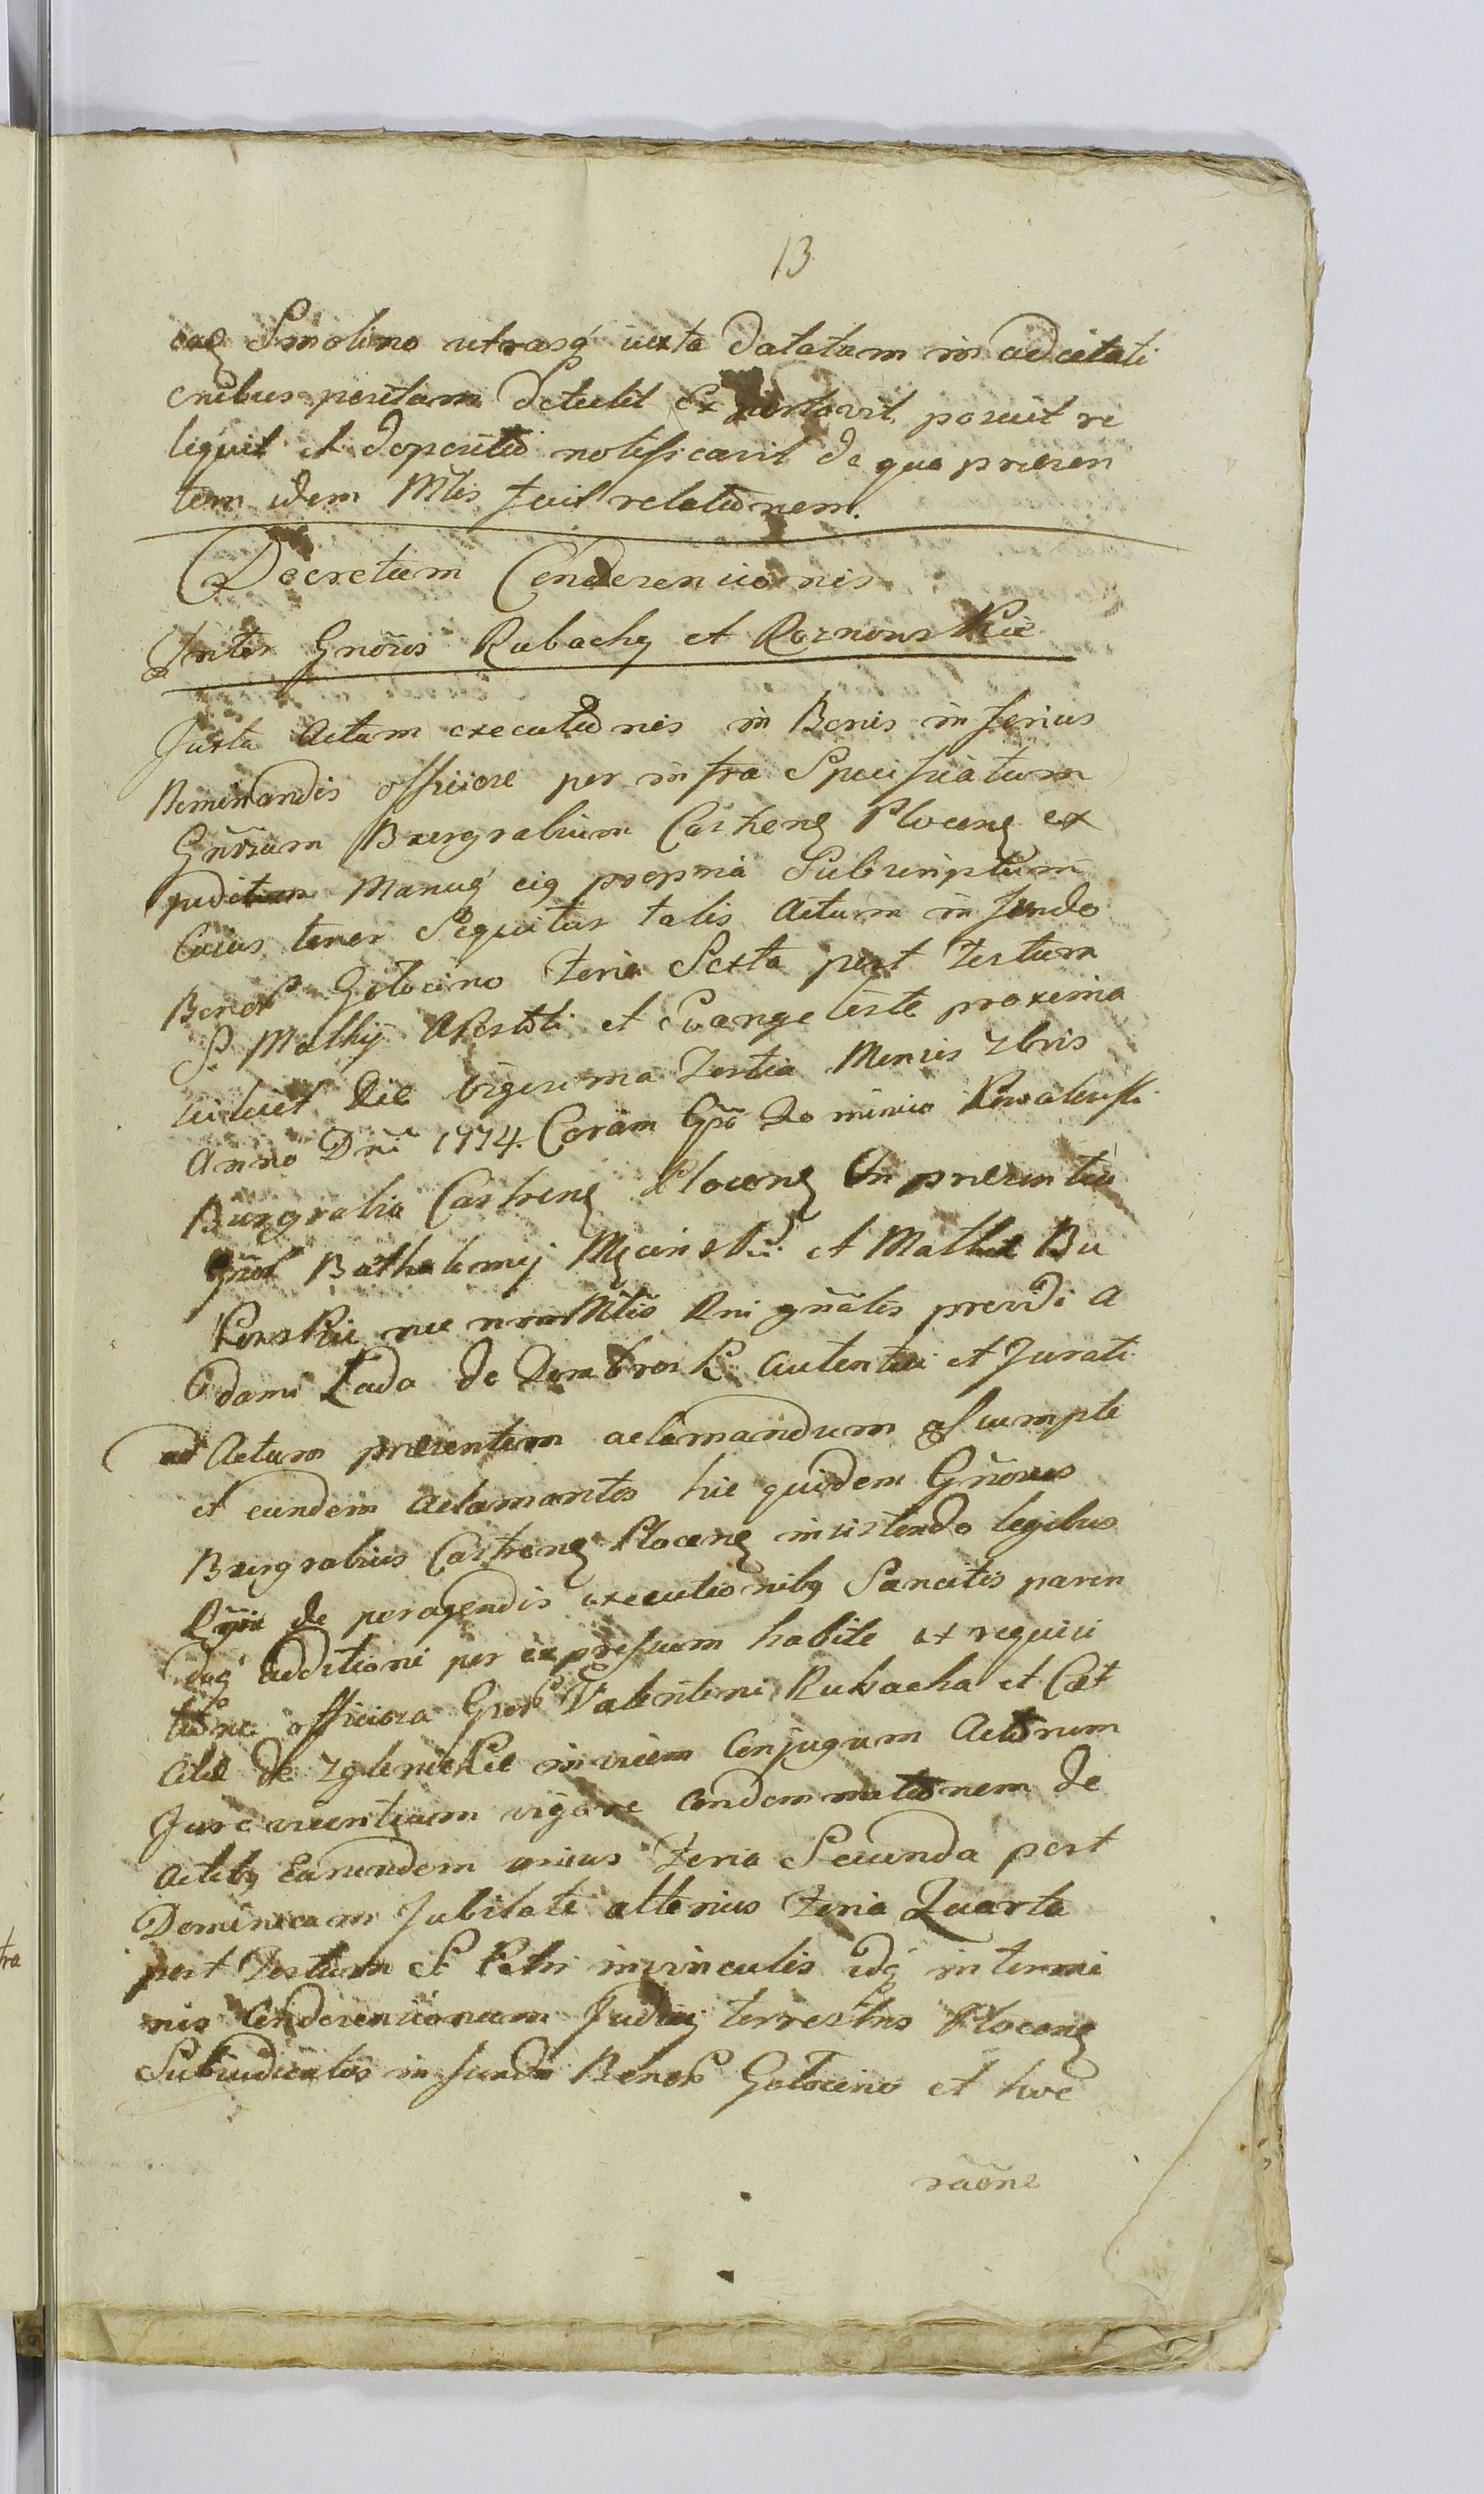 13
eaq Smolino utrasq́ iuxta datatam in adcitati
onibus positam detulit Exportavit posuit re
liquit et depositō notificavit de quo presen
tem idem Mtlis fecit relationem.
Decretum Condescensionis
Inter Gnōrōs Rubachy et Roznowskie
Juxta Actum executionis in Bonis inferius
Nominandis officiose per infra Specificatum
Gnrsum Burgrabium Castrenś Plocenś ex
peditum Manuq́ eiq propria Subscriptum
Cuius tenor Sequitur talis Actum in fundo
Bonor Golocino Feria Sexta post Festum
S. Mathij Apostoli et Evangeliste proxima
scilicet Die Vigesima Tertia Mensis 7bris
Anno Dni 1774. Coram Gso Dominico Kowalewski
Burgrabio Castrenś Plocenś In presentia
Gnor Bathelomij Mycinski et Mathie Bu
kowskie nec non Mtlis Rni gnālis providi A
dami Lada de Dombrosk Autentici et Jurati
ad Actum presentem aclamandum assumpti
et eundem aclamantes hic quidem Gnōsus
Burgrabius Castrenś Plocenś insistendo legibus
Rgni de peragendis executionibq Sancitis paren
doq́ additioni per expressum habite et requisi
tione officiosa Gsor Valentini Rubacha et Cat
de Zglenickie invicem Conjugum Actorum
Jure vincentium vigore Condemnationem de
Actibq Earundem unius Feria Secunda post
Dominicam Jubilate alterius Feria Quarta
post Festum S. Petri in vinculis idq́ in termi
nis Condescensionum Judicij terrestris Plocenś
Subiudicatos in fundo Bonor Golocino et hoc
raōne